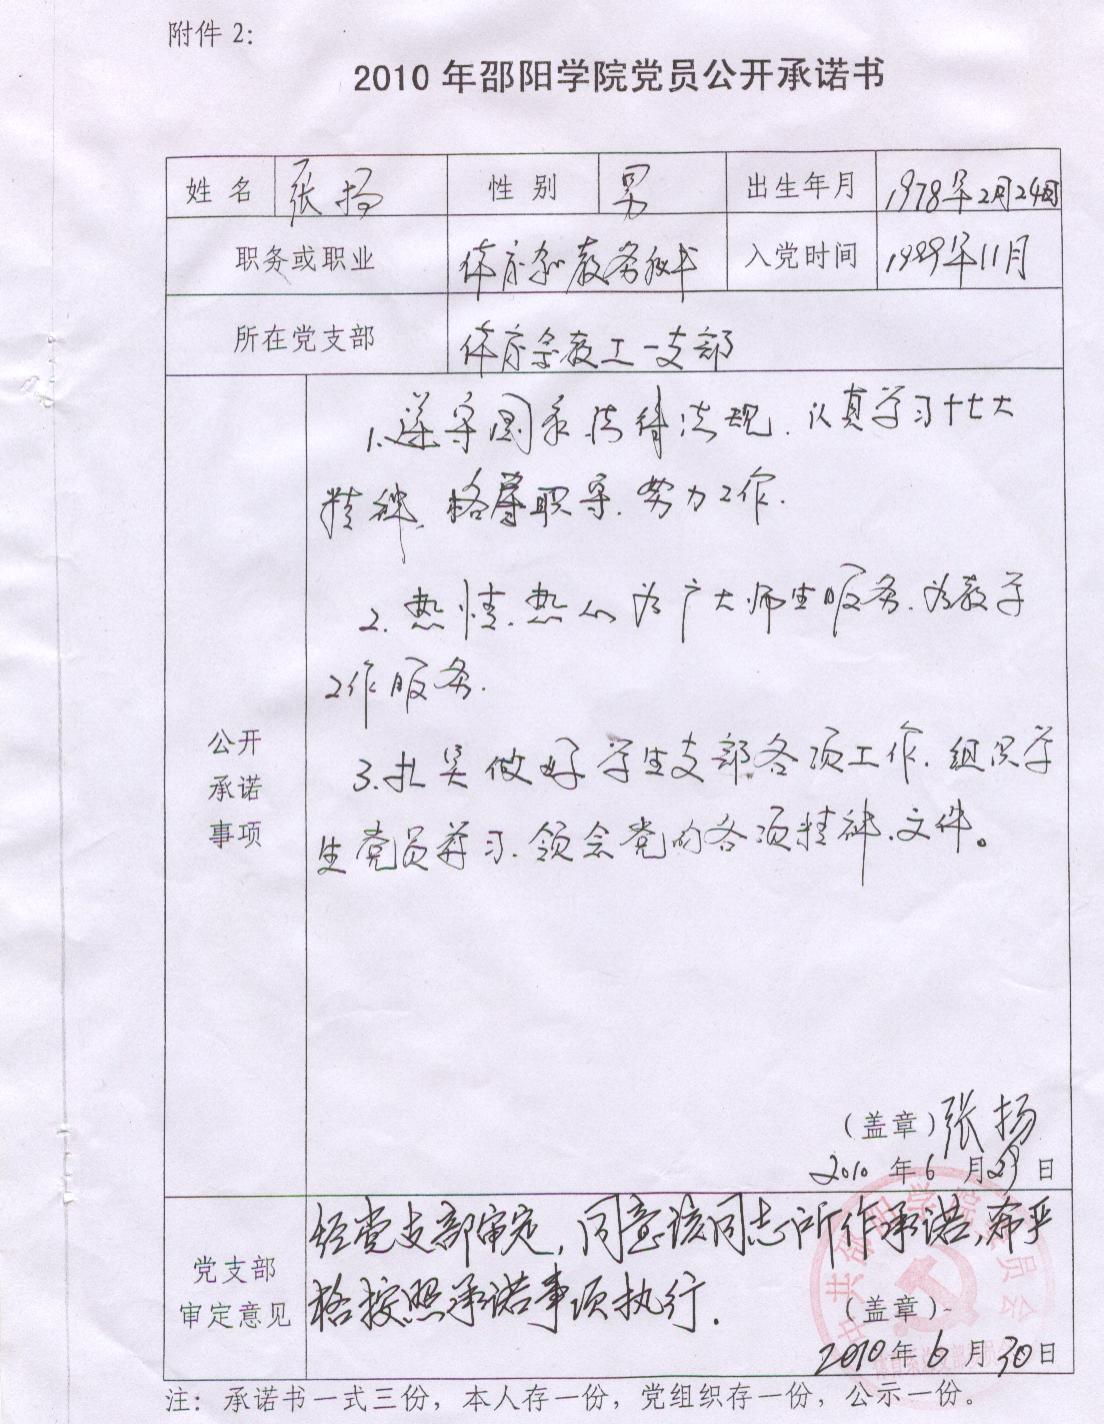 附件 2：
2010 年邵阳学院党员公开承诺书
姓 名 张扬 性 别 男 出生年月 1978年2月24日
职务或职业 体育系教务秘书 入党时间 1999年11月
所在党支部 体育系教工一支部
公开
承诺
事项
1.遵守国家法律法规、认真学习十七大
精神、恪尊职守、努力工作.
2.热情、热心为广大师生服务、为教学
工作服务.
3.扎实做好学生支部各项工作、组织学
生党员学习、领会党的各项精神、文件。
（盖章）张扬
2010 年 6 月29日
党支部
审定意见
经党支部审定，同意该同志所作承诺，希严
格按照承诺事项执行.
（盖章）
2010年 6 月 30日
注：承诺书一式三份，本人存一份，党组织存一份，公示一份。